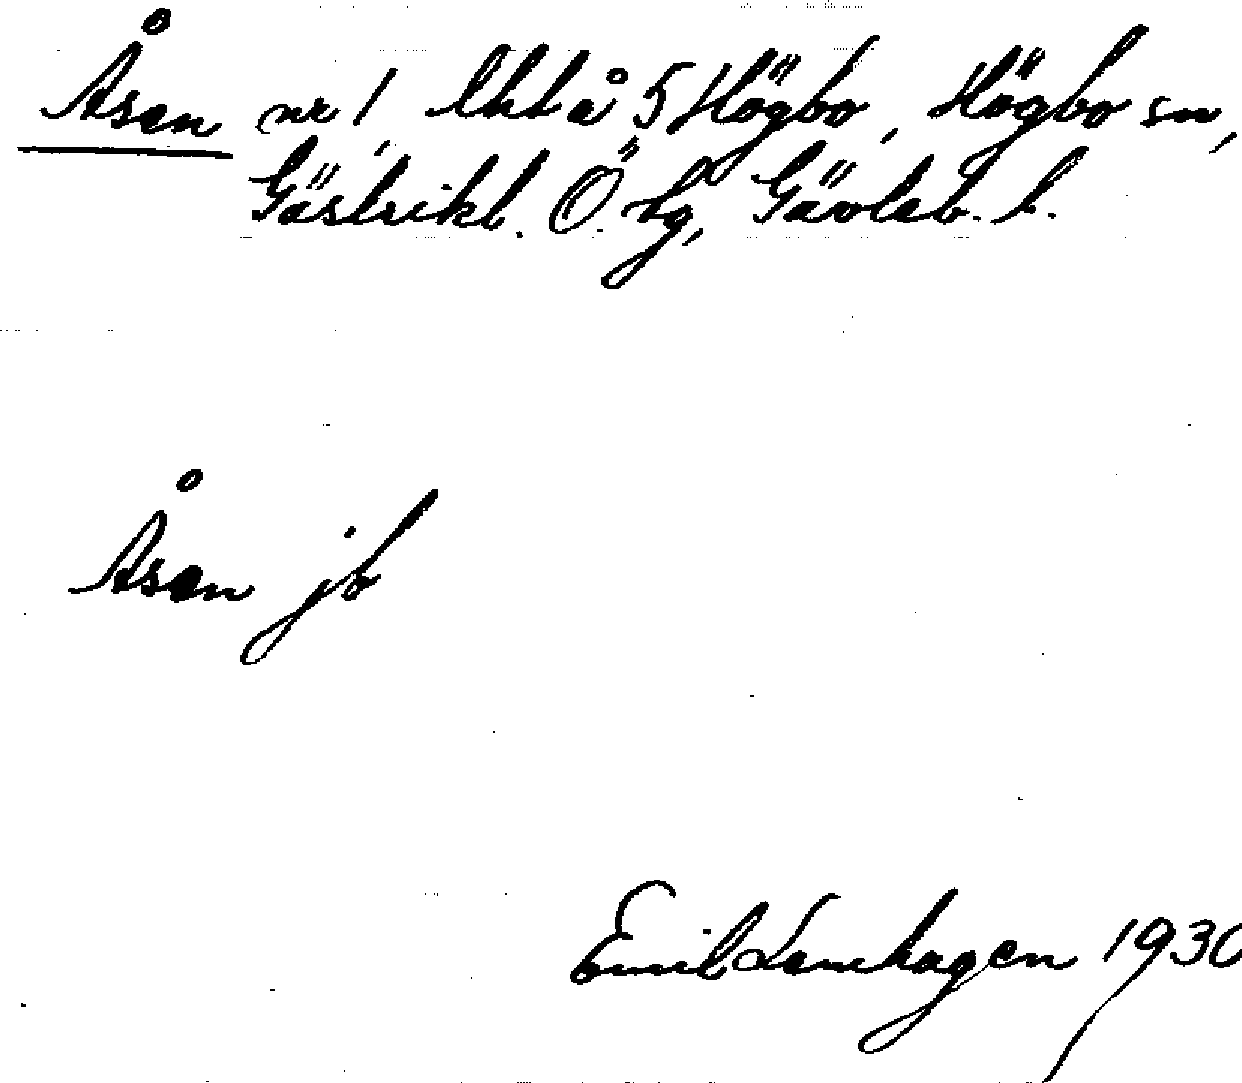 Åsen nr 1, lht å 5 Högbo, Högbo sn,
Gästrikl. Ö. tg, Gävleb. l.
Åsen jb
Emil Lenhagen 1930